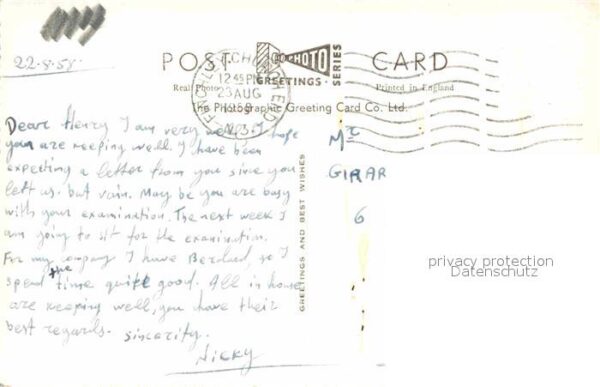 22-8-58
POST CARD
PHOTO
GREETINGS
SERIES
Real Photo
Printed in England
The Photographic Greeting Card Co. Ltd.
FINCHLEY CHURCH END
12 45 PM
23 AUG
1958
N.3.
Dear Henry I am very well. I hope
you are keeping well. I have been
expecting a letter from you since you
left us. but vain. May be you are busy
with your examination. The next week I
am going to sit for the examination.
For my company I have so I
spend the time quite good. All in house
are keeping well, you have their
best regards. sincerity.
Nicky
GREETINGS AND BEST WISHES
Mr
GIRAR
6
privacy protection
Datenschutz